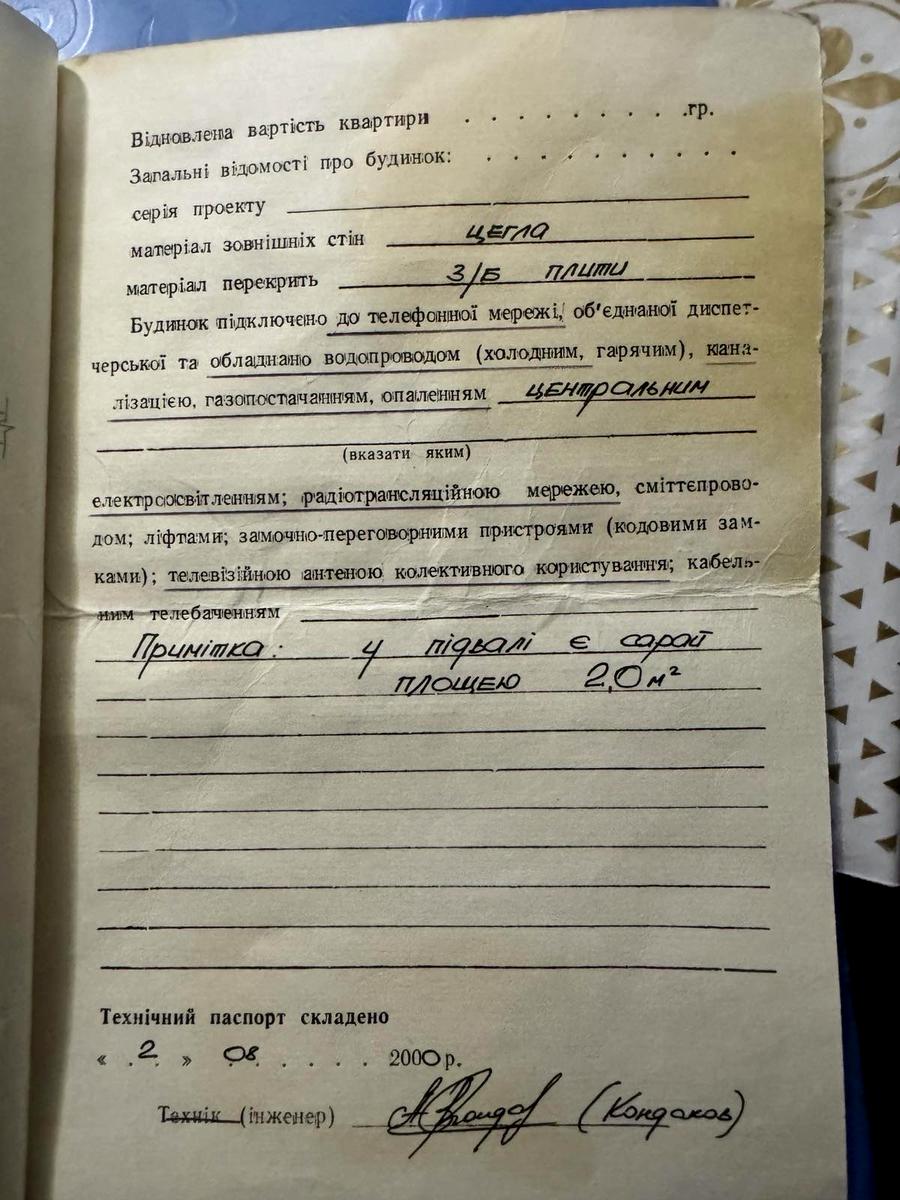 Відновлена вартість квартири . . . . . . . . .гр.
Загальні відомості про будинок: . . . . . . . . . .
серія проекту
матеріал зовнішніх стін ЦЕГЛА
матеріал перекрить З/Б ПЛИТИ
Будинок підключено до телефонної мережі, об'єднаної диспет-
черської та обладнано водопроводом (холодним, гарячим), кана-
лізацією, газопостачанням, опаленням ЦЕНТРАЛЬНИМ
(вказати яким)
електроосвітленням; радіотрансляційною мережею, сміттєпрово-
дом; ліфтами; замочно-переговорними пристроями (кодовими зам-
ками); телевізійною антеною колективного користування; кабель-
ним телебаченням
Примітка: у підвалі є сарай
площею 2,0 м²
Технічний паспорт складено
« 2 » 08 . . . . 2000 р.
Технік (інженер) (Кондаков)